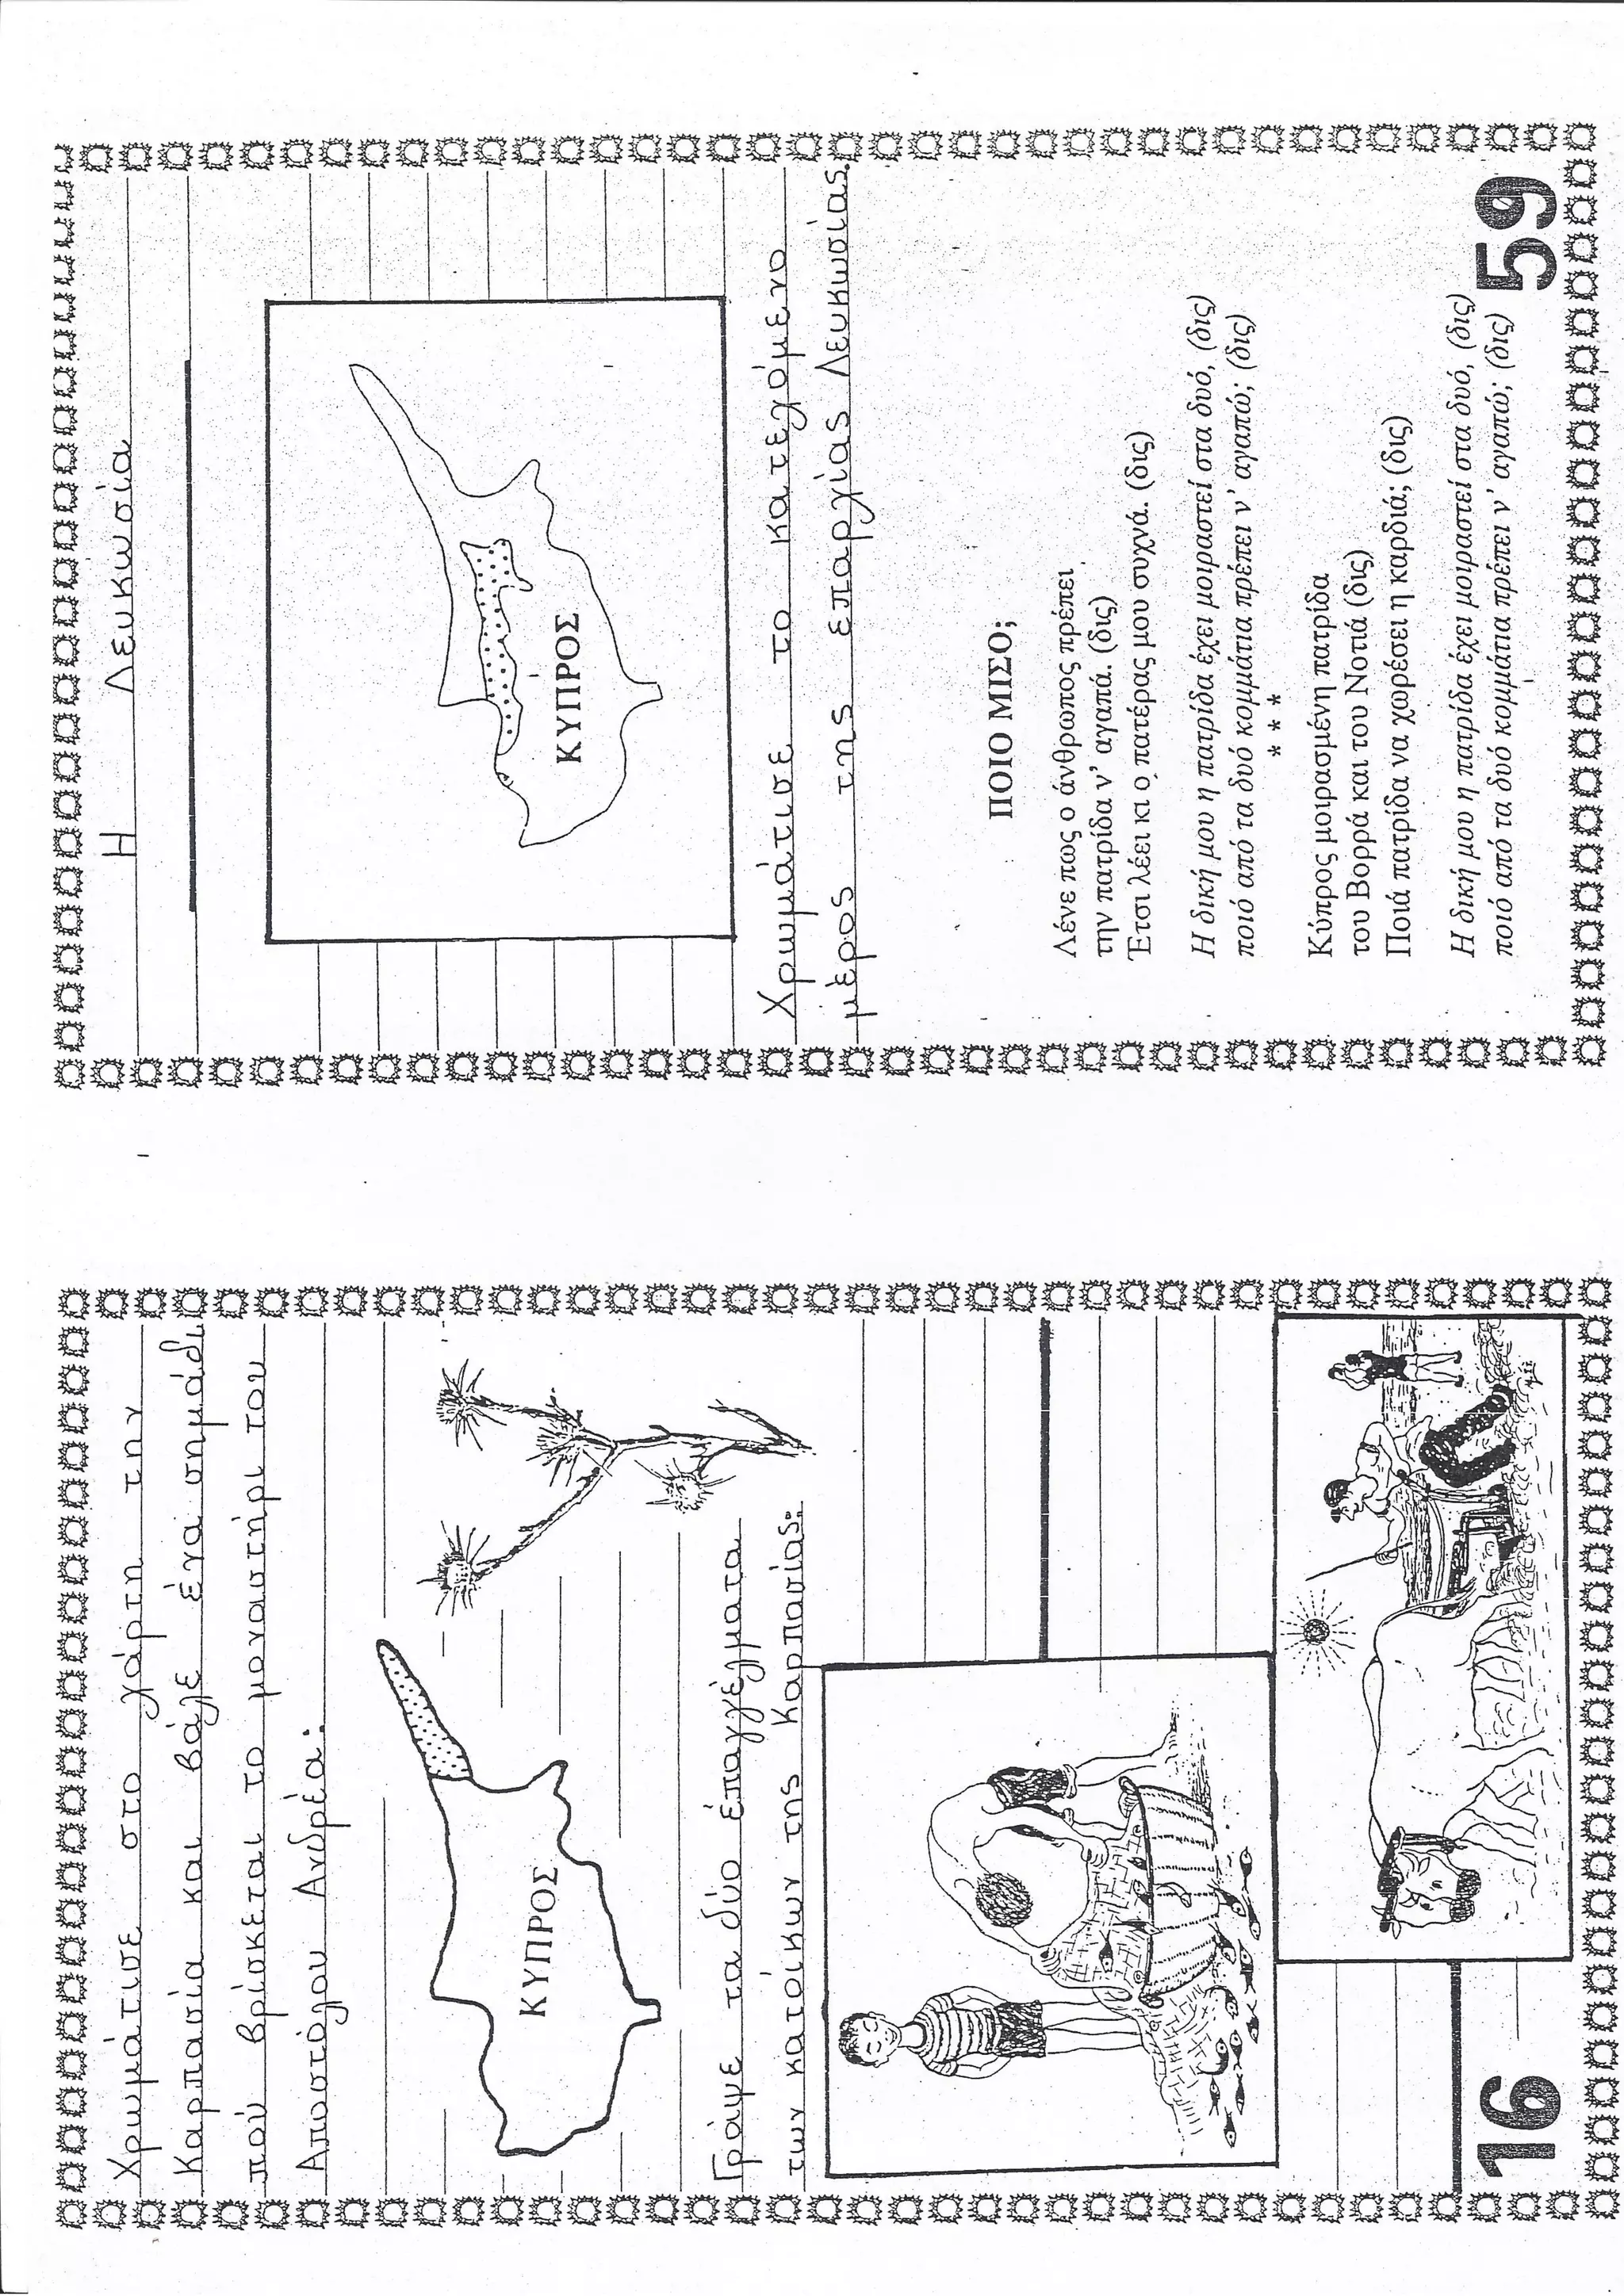 Χρωμάτισε στο χάρτη την
Καρπασία και βάλε ένα σημάδι
πού βρίσκεται το μοναστήρι του
Αποστόλου Ανδρέα:
ΚΥΠΡΟΣ
Γράψε τα δύο έπαγγέλματα
των κατοίκων της Καρπασίας:
16
Η Λευκωσία
ΚΥΠΡΟΣ
Χρωμάτισε το κατεχόμενο
μέρος της επαρχίας Λευκωσίας.
ΠΟΙΟ ΜΙΣΟ;
Λένε πως ο άνθρωπος πρέπει
την πατρίδα ν' αγαπά. (δις)
Έτσι λέει κι ο πατέρας μου συχνά. (δις)
Η δική μου η πατρίδα έχει μοιραστεί στα δυό, (δις)
ποιό από τα δυό κομμάτια πρέπει ν' αγαπώ; (δις)
* * *
Κύπρος μοιρασμένη πατρίδα
του Βορρά και του Νοτιά (δις)
Ποιά πατρίδα να χωρέσει η καρδιά; (δις)
Η δική μου η πατρίδα έχει μοιραστεί στα δυό, (δις)
ποιό από τα δυό κομμάτια πρέπει ν' αγαπώ; (δις)
59